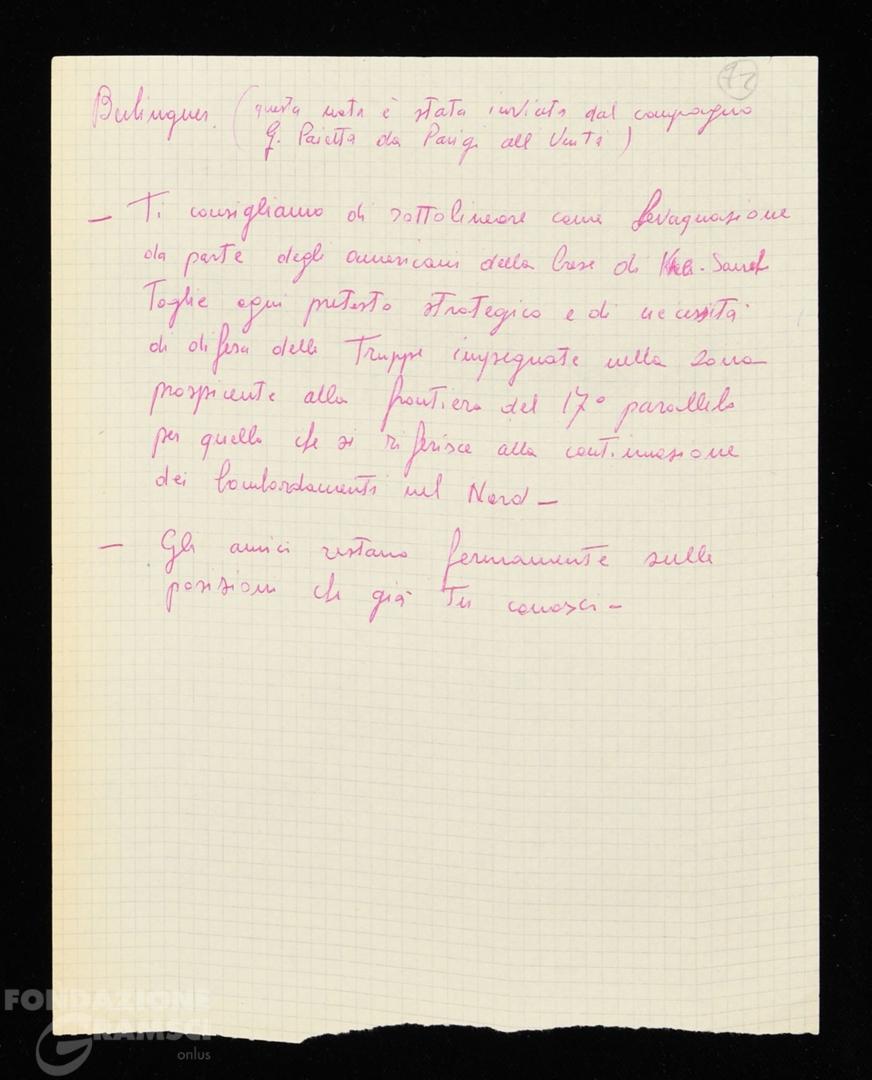 72
Berlinguer. (questa nota è stata inviata dal compagno
G. Paietta da Parigi all Unità)
— Ti consigliamo di sottolineare come l'evaquasione
da parte degli americani della base di Khe-Sanh
Toglie ogni pretesto strategico e di necessità
di difesa delle Truppe impegnate nella zona
prospicente alla frontiera del 17° parallelo
per quello che si riferisce alla continuasione
dei bombardamenti nel Nord —
— Gli amici restano fermamente sulle
posizioni che già Tu conosci —
FONDAZIONE
GRAMSCI
onlus